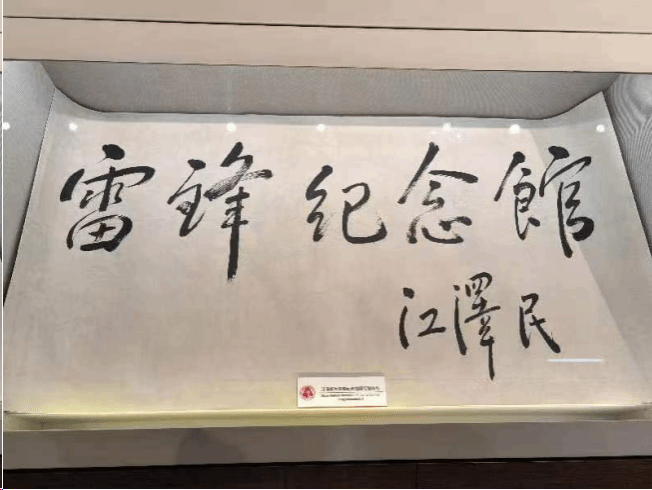 雷锋纪念館
江澤民